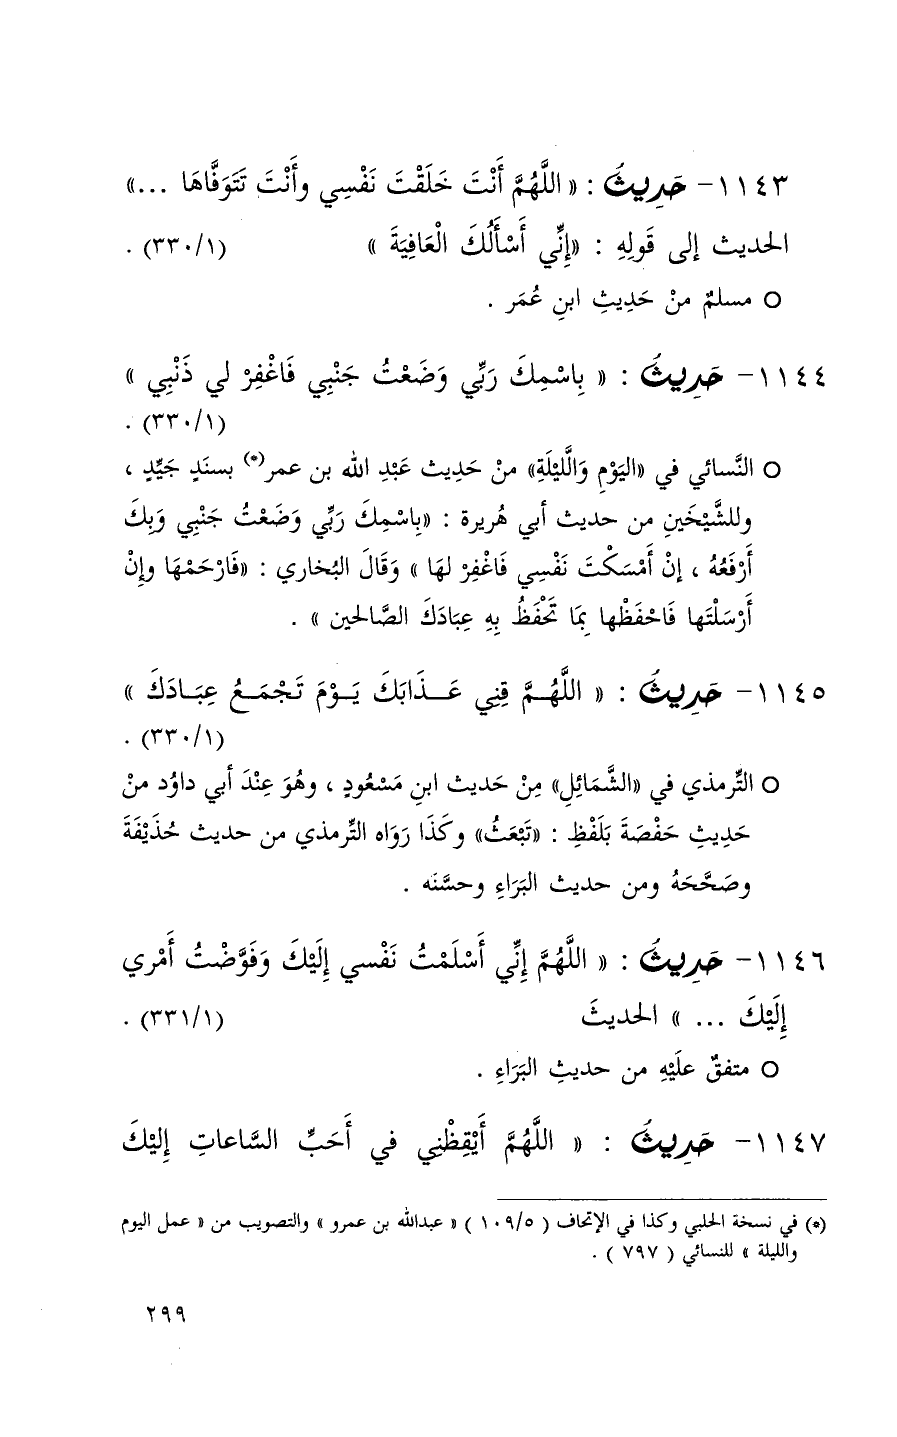 ١١٤٣- حَدِيثُ : « اللَّهُمَّ أَنْتَ خَلَقْتَ نَفْسِي وأَنْتَ تَتَوَفَّاهَا ...»
الحديث إلى قَولِهِ : «إِنِّي أَسْأَلُكَ الْعَافِيَةَ » (٣٣٠/١) .
○ مسلمٌ منْ حَدِيثِ ابنِ عُمَر .
١١٤٤- حَدِيثُ : « بِاسْمِكَ رَبِّي وَضَعْتُ جَنْبِي فَاغْفِرْ لي ذَنْبِي »
(٣٣٠/١) .
○ النَّسائي في «اليَوْمِ وَالَّليْلَةِ» منْ حَدِيث عَبْدِ الله بن عمر(*) بسنَدٍ جَيِّدٍ ،
وللشَّيْخَينِ من حديث أبي هُريرة : «بِاسْمِكَ رَبِّي وَضَعْتُ جَنْبِي وَبِكَ
أَرْفَعُهُ ، إنْ أَمْسَكْتَ نَفْسِي فَاغْفِرْ لهَا » وَقَالَ البُخاري : «فَارْحَمْهَا وإنْ
أَرْسَلْتَها فَاحْفَظْها بِمَا تَحْفَظُ بِهِ عِبَادَكَ الصَّالحين » .
١١٤٥- حَدِيثُ : « اللَّهُـمَّ قِنِي عَـذَابَكَ يَـوْمَ تَجْمَـعُ عِبَـادَكَ »
(٣٣٠/١) .
○ التِّرمذي في «الشَّمَائِلِ» مِنْ حَديث ابنِ مَسْعُودٍ ، وهُوَ عِنْدَ أبي داوُد منْ
حَدِيثِ حَفْصَةَ بَلَفْظِ : «تَبْعَثُ» وكَذَا رَوَاه التِّرمذي من حديث حُذَيْفَةَ
وصَحَّحَهُ ومن حديث البَرَاءِ وحسَّنَه .
١١٤٦- حَدِيثُ : « اللَّهُمَّ إِنِّي أَسْلَمْتُ نَفْسي إِلَيْكَ وَفَوَّضْتُ أَمْري
إِلَيْكَ ... » الحديثَ (٣٣١/١) .
○ متفقٌ علَيْهِ من حديثِ البَرَاءِ .
١١٤٧- حَدِيثُ : « اللَّهُمَّ أَيْقِظْنِي في أَحَبِّ السَّاعاتِ إليْكَ
(*) في نسخة الحلبي وكذا في الإتحاف ( ١٠٩/٥ ) « عبدالله بن عمرو » والتصويب من « عمل اليوم
والليلة » للنسائي ( ٧٩٧ ) .
٢٩٩